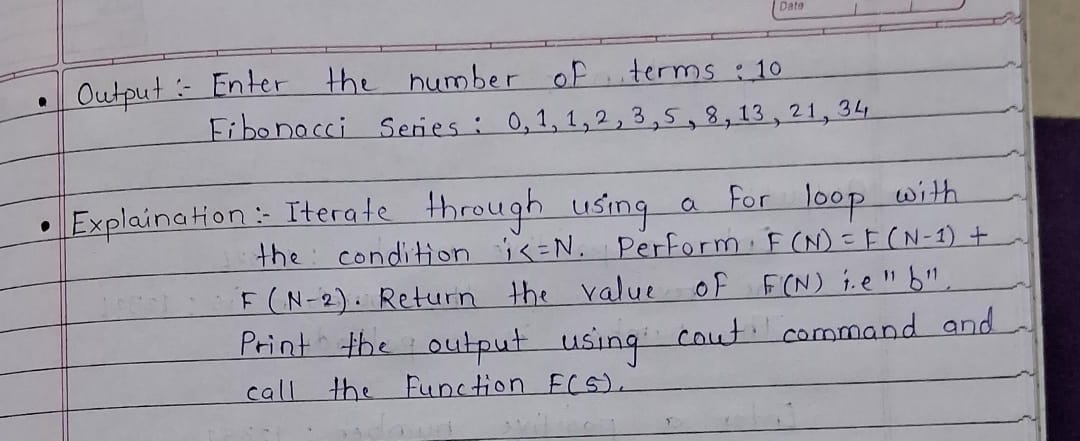 Date
• Output :- Enter the number of terms : 10
Fibonacci Series : 0, 1, 1, 2, 3, 5, 8, 13, 21, 34
• Explaination :- Iterate through using a for loop with
the condition i<=N. Perform F(N) = F(N-1) +
F(N-2). Return the value of F(N) i.e "b".
Print the output using cout command and
call the Function F(5).